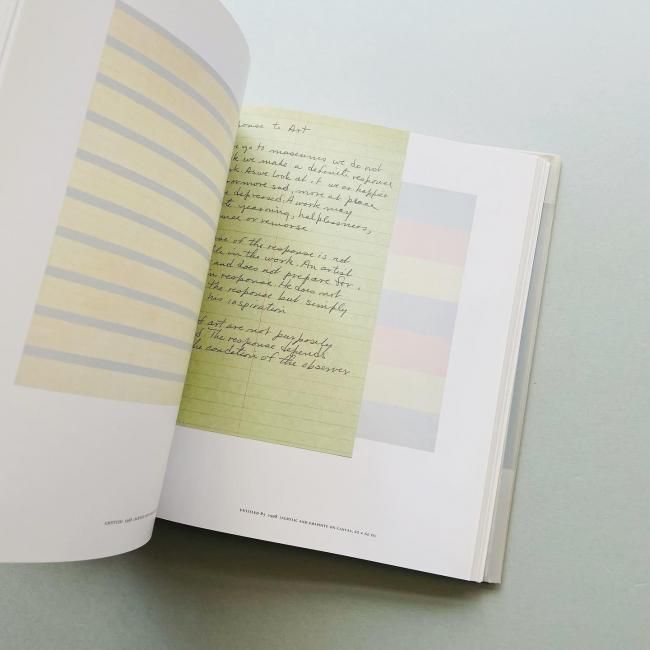 ponse to Art
go to museums we do not
k we make a definite response
k. As we look at it we are happier
or more sad, more at peace
e depressed. A work may
te yearning, helplessness,
ance or remorse
se of the response is not
le in the work. An artist
and does not prepare for
n response. He does not
the response but simply
his inspiration
f art are not purposely
d. The response depends
he condition of the observer
UNTITLED 1998
UNTITLED #5 1998 (ACRYLIC AND GRAPHITE ON CANVAS, 60 x 60 IN)